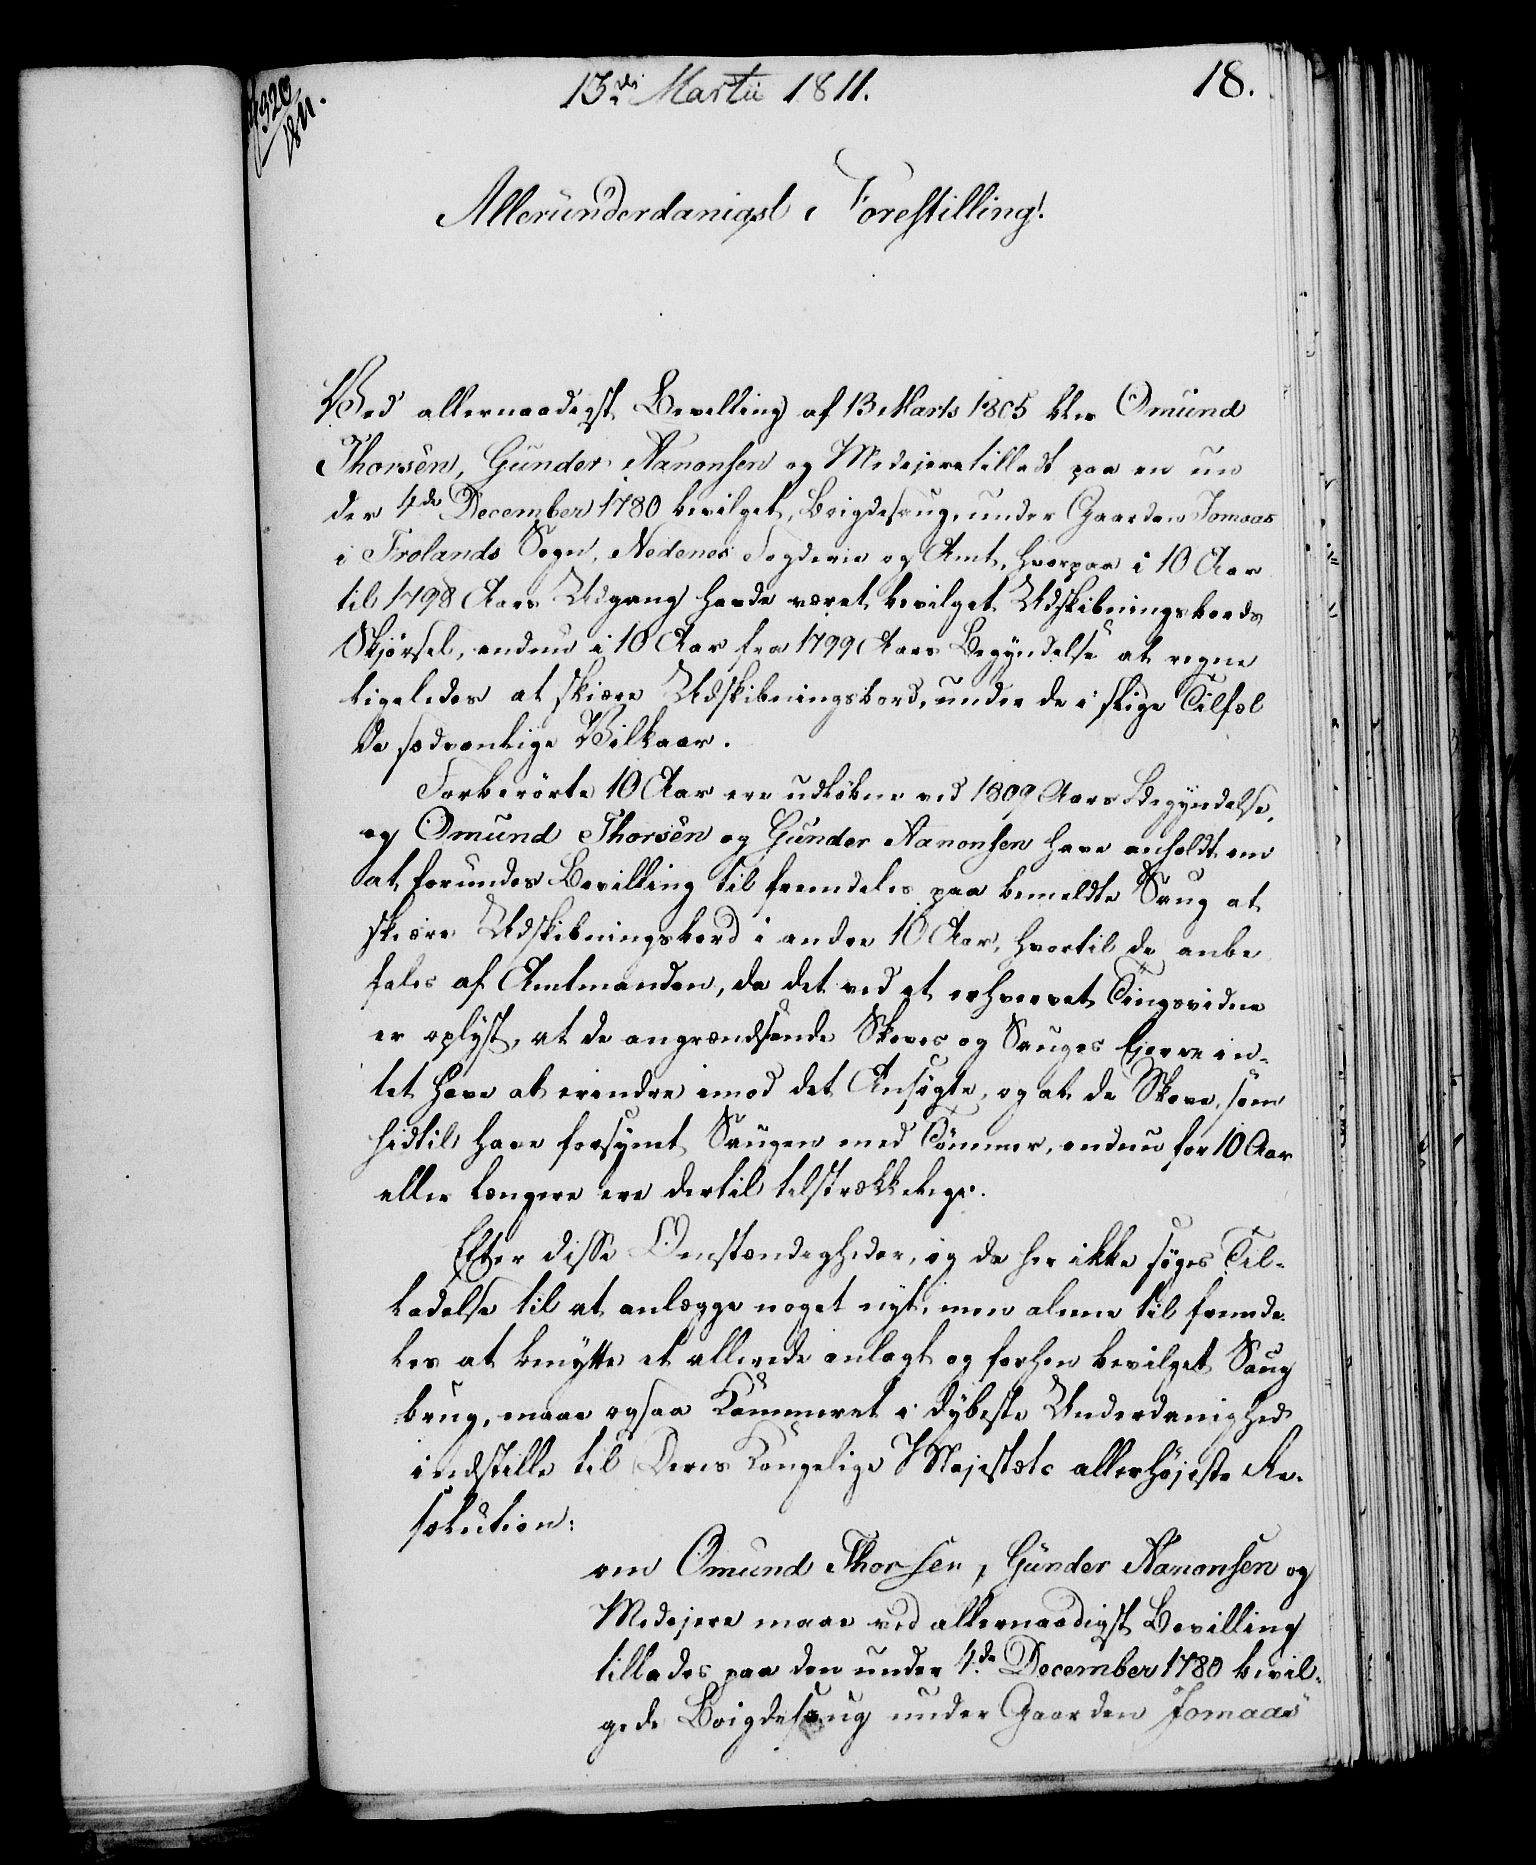 320
1811.
13de Martii 1811.
18.
Allerunderdanigst Forestilling!
Ved allernaadigst Bevilling af 13 Marts 1805 blev Omund
Thorsen, Gunder Aanonsen og Medejere tilladt paa en un
der 4de December 1780 bevilget Bøigdesaug, under Gaarden Jomaas
i Frolands Sogn, Nedenes Fogderie og Amt, hvorpaa i 10 Aar
til 1798 Aars Udgang havde været bevilget Udskibningsbords
Skjørsel, endnu i 10 Aar fra 1799 Aars Begyndelse at regne
ligeledes at skiære Udskibningsbord, under de i slige Tilfæl
de sædvanlige Vilkaar.
Forberørte 10 Aar ere udløbne ved 1809 Aars Begyndelse,
og Omund Thorsen og Gunder Aanonsen have anholdt om
at forundes Bevilling til fremdeles paa bemeldte Saug at
skiære Udskibningsbord i andre 10 Aar, hvortil de anbe
fales af Amtmanden, da det ved et erhvervet Tingsvidne
er oplyst, at de angrændsende Skoves og Sauges Ejere in-
tet have at erindre imod det Ansøgte, og at de Skove, som
hidtil have forsynt Saugen med Tømmer, endnu for 10 Aar
eller længere ere dertil tilstrækkelige.
Efter disse Omstændigheder, og da her ikke søges Til-
ladelse til at anlægge noget nyt, men alene til fremde-
les at benytte et allerede anlagt og forhen bevilget Saug
brug, maae ogsaa Kammeret i dybeste Underdanighed
indstille til Deres Kongelige Majestæts allerhøjeste Re-
solution:
om Omund Thorsen, Gunder Aanonsen og
Medejere maae ved allernaadigst Bevilling
tillades paa den under 4de December 1780 bevil-
gede Bøigdesaug under Gaarden Jomaas